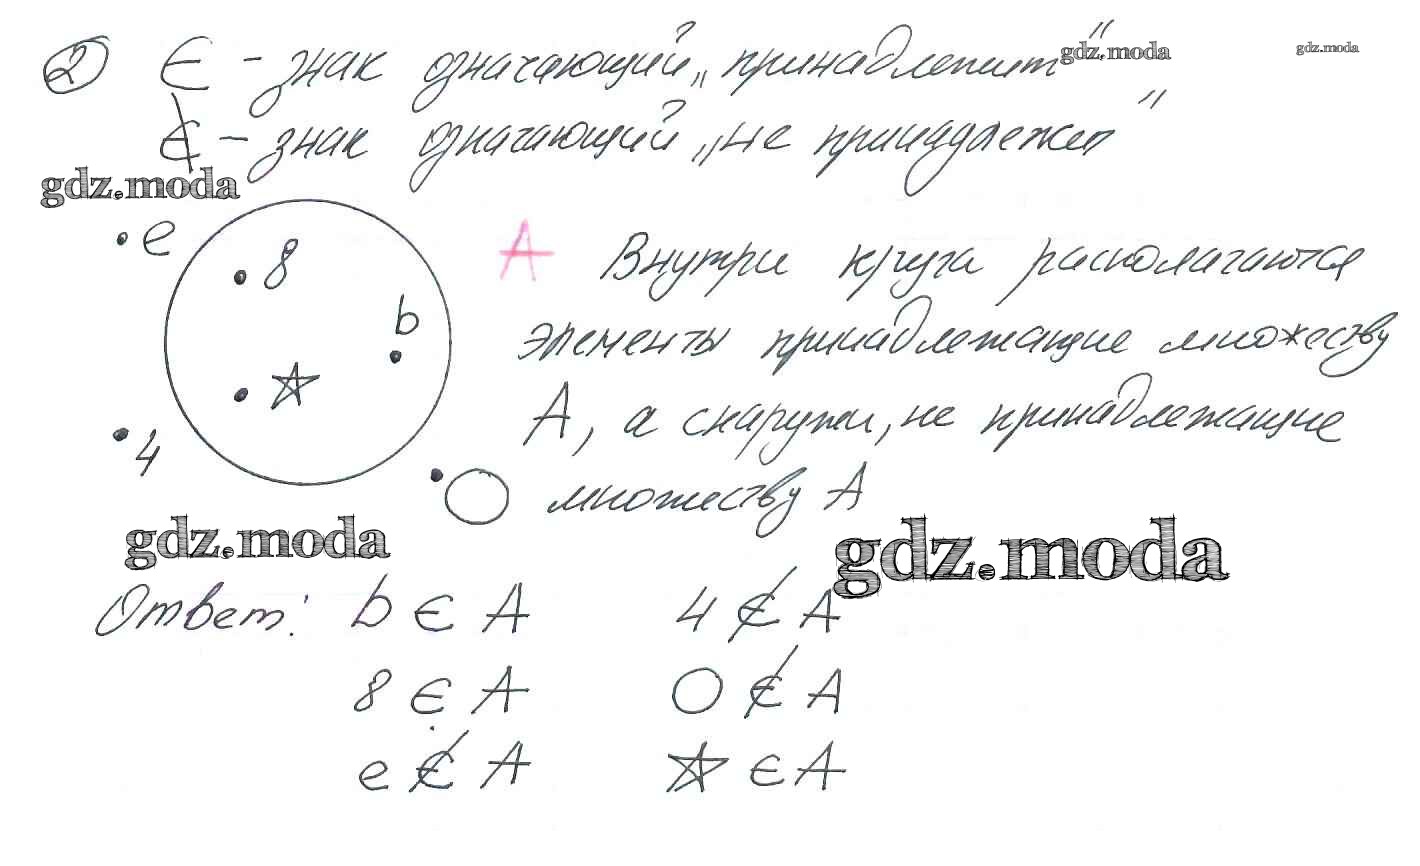 2 ∈ - знак означающий „принадлежит"
gdz.moda
gdz.moda
∉ - знак означающий „не принадлежит"
gdz.moda
e
8
A Внутри круга располагаются
b
элементы принадлежащие множеству
A, а снаружи, не принадлежащие
4
множеству A
gdz.moda
gdz.moda
Ответ: b ∈ A 4 ∉ A
8 ∈ A ○ ∉ A
e ∉ A ☆ ∈ A